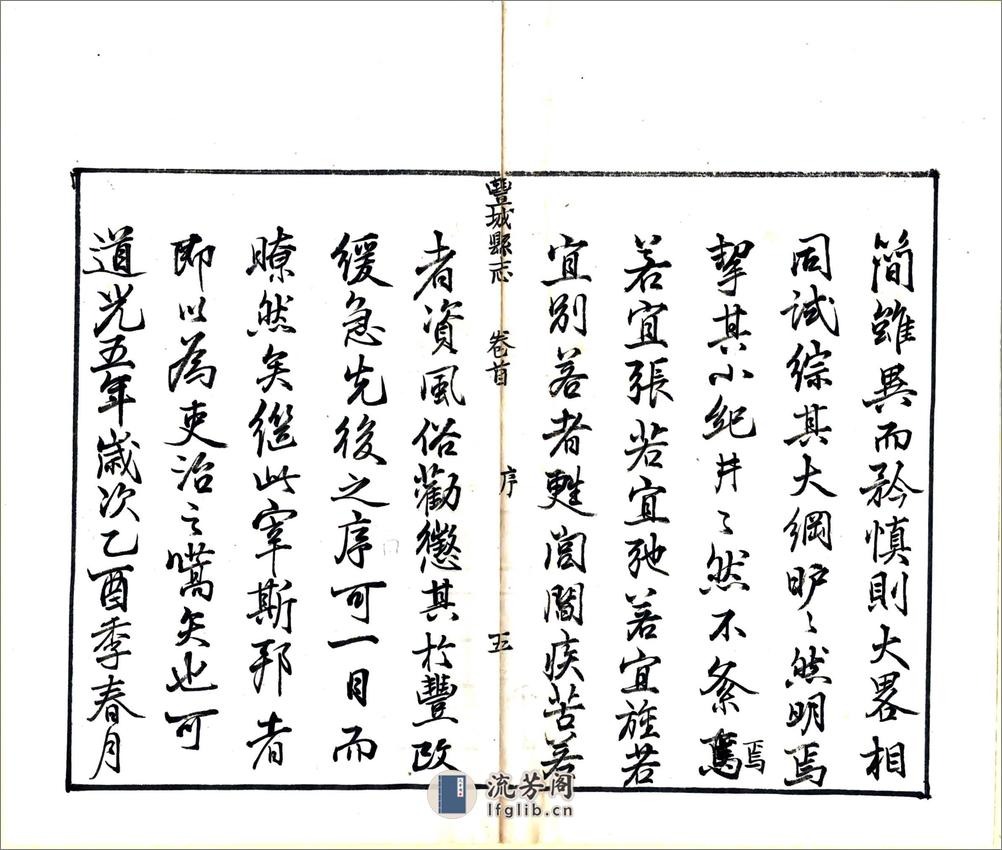 簡雖異而矜慎則大畧相
同試綜其大綱昈〻然明焉
挈其小紀井〻然不紊焉
焉
若宜張若宜弛若宜旌若
宜別若者甦閭閻疾苦若
豐城縣志 卷首 序 五
者資風俗勸懲其於豐政
緩急先後之序可一目而
瞭然矣繼此宰斯邦者
即以為吏治之嚆矢也可
道光五年歲次乙酉季春月
流芳阁
lfglib.cn